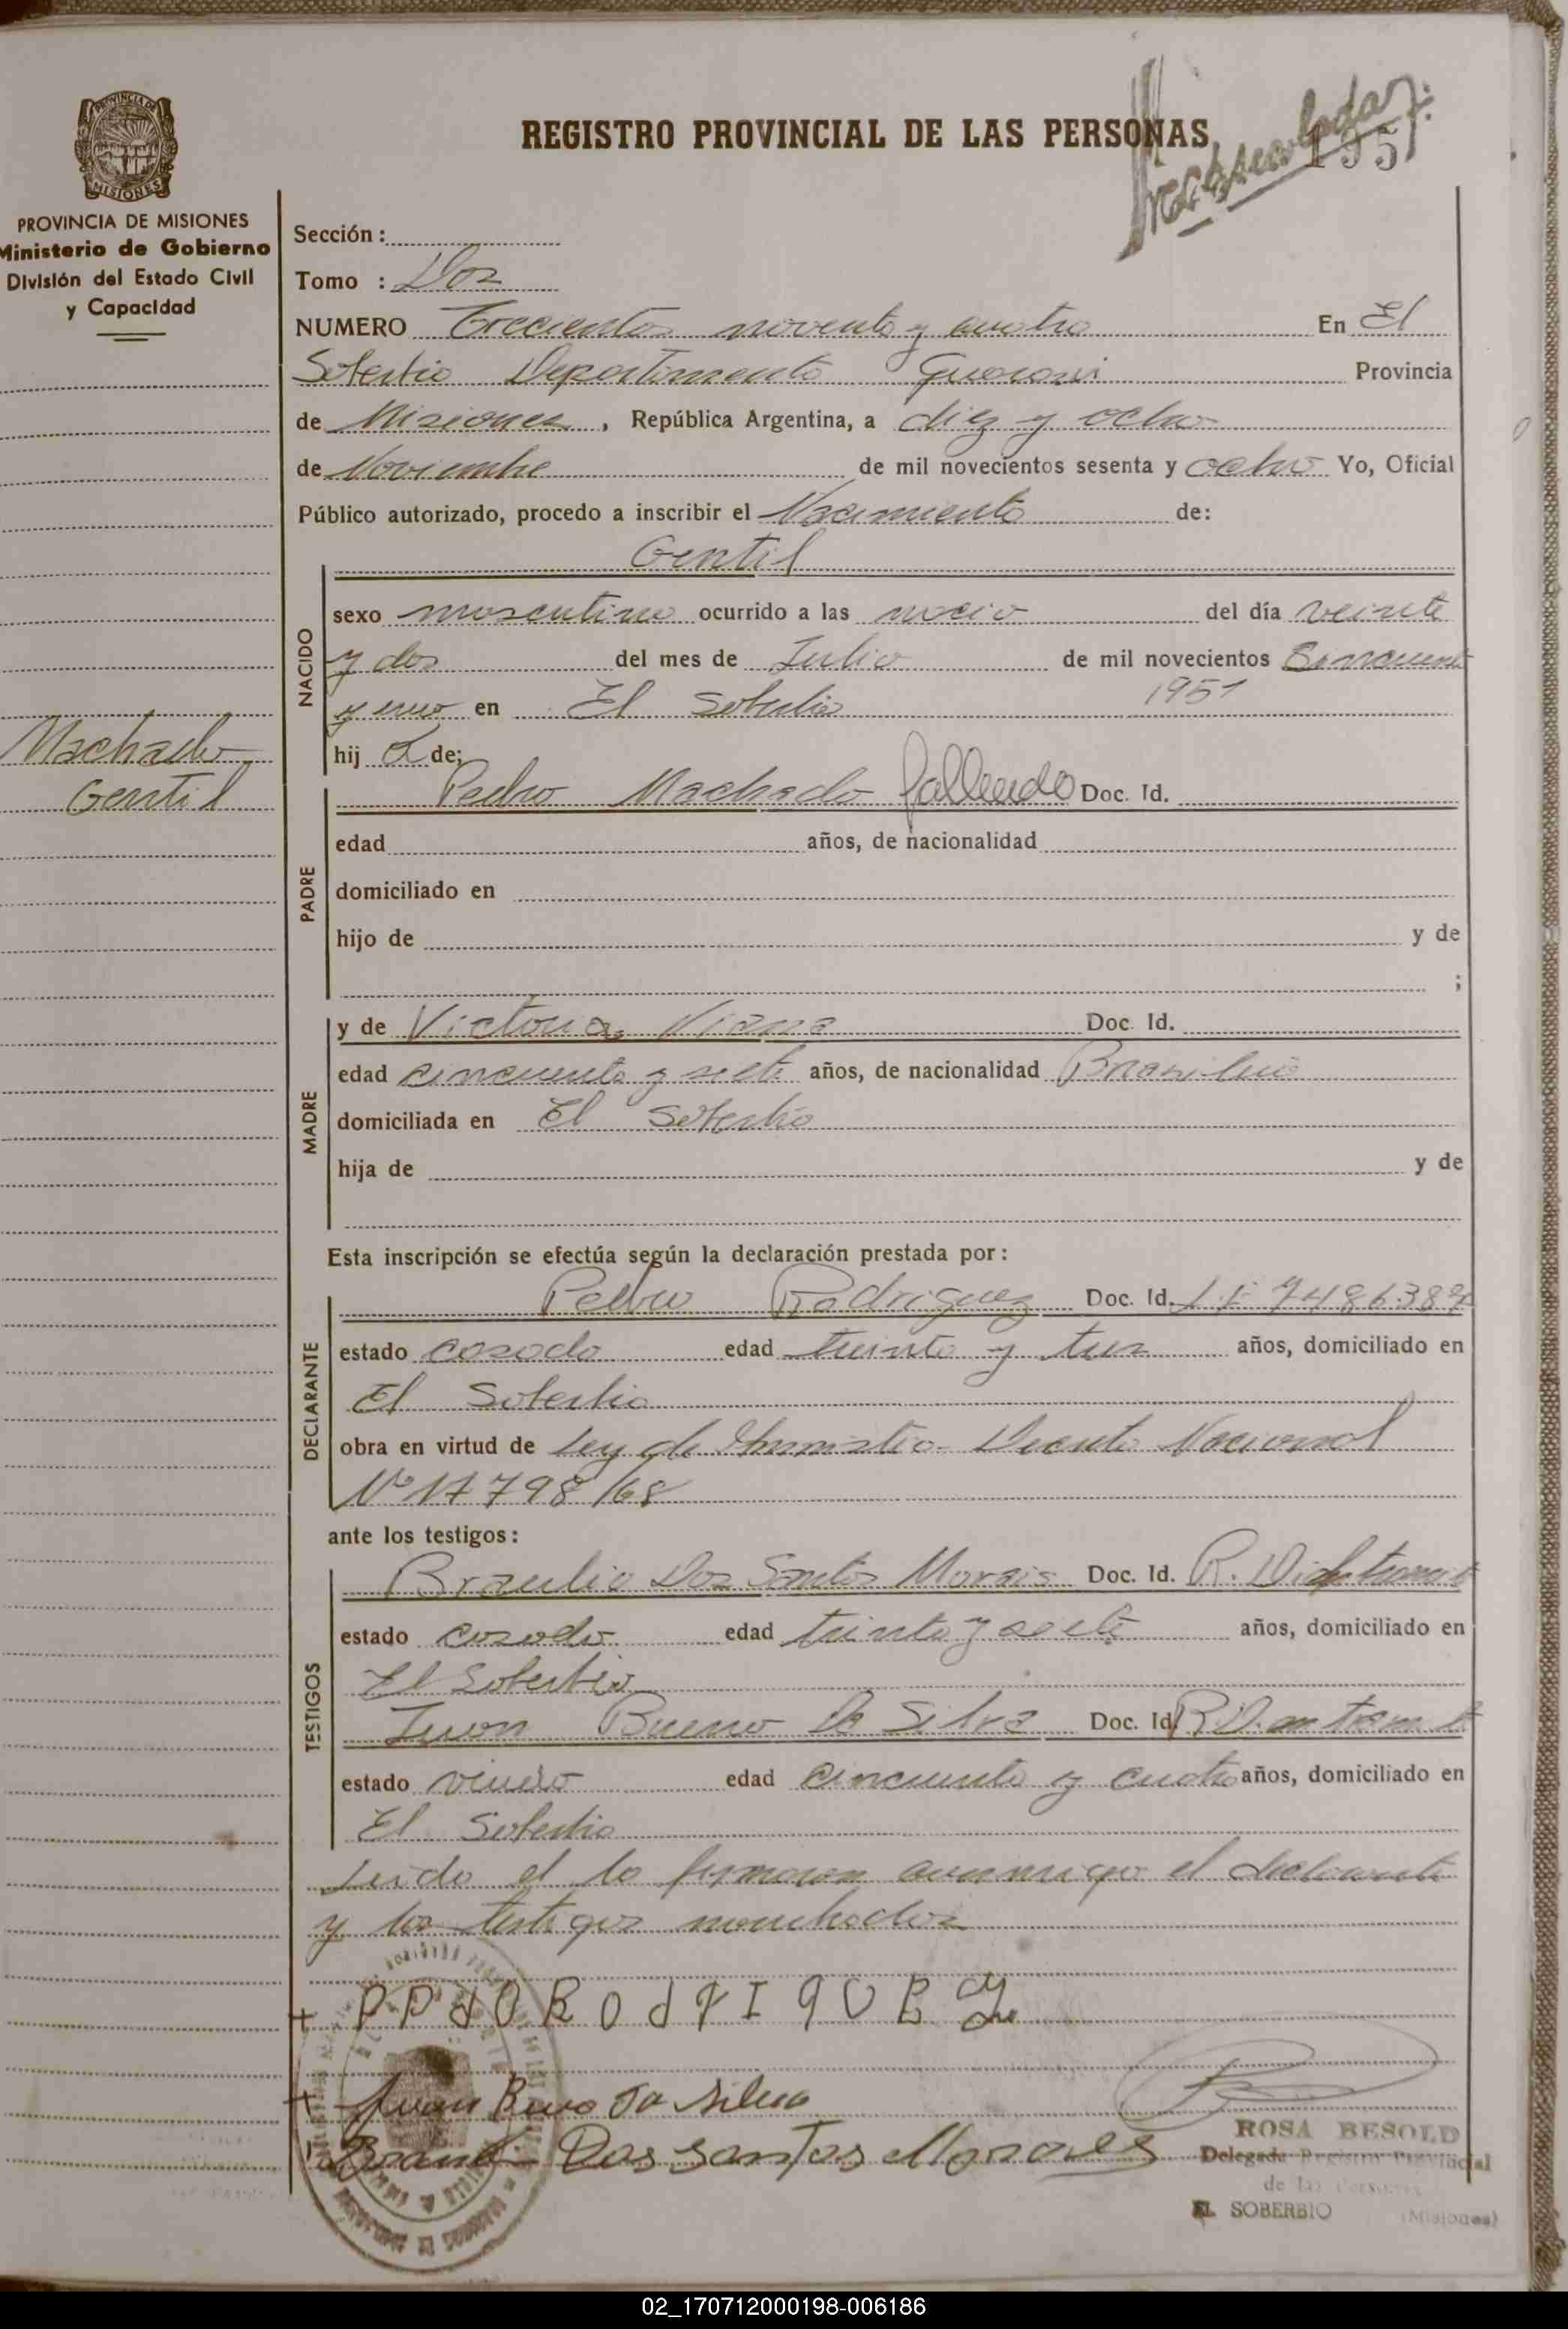 REGISTRO PROVINCIAL DE LAS PERSONAS
195
PROVINCIA DE MISIONES
Ministerio de Gobierno
División del Estado Civil
y Capacidad
Sección :
Tomo : Dos
NUMERO Trecientos noventa y cuatro En El
Soberbio Departamento Guarani Provincia
de Misiones, República Argentina, a diez y ocho
de Noviembre de mil novecientos sesenta y ocho Yo, Oficial
Público autorizado, procedo a inscribir el Nacimiento de:
Gentil
NACIDO
sexo masculino ocurrido a las nacio del día veinte
y dos del mes de Julio de mil novecientos
y uno en El Soberbio 1951
Machado
Gentil
hij o de;
Pedro Machado fallecido Doc. Id.
PADRE
edad años, de nacionalidad
domiciliado en
hijo de y de
;
MADRE
y de Victoria Viana Doc. Id.
edad cincuenta y siete años, de nacionalidad Brasileña
domiciliada en El Soberbio
hija de y de
Esta inscripción se efectúa según la declaración prestada por :
DECLARANTE
Pedro Rodriguez Doc. Id.
estado casado edad treinta y tres años, domiciliado en
El Soberbio
obra en virtud de Ley de Amnistia Decreto Nacional
Nº 17798/68
ante los testigos :
TESTIGOS
Braulio Dos Santos Morais Doc. Id.
estado casado edad treinta y siete años, domiciliado en
El Soberbio
Juan Bueno Da Silva Doc. Id
estado viudo edad cincuenta y cuatro años, domiciliado en
El Soberbio
Leido el la firmaron conmigo el declarante
y los testigos
PPdOROdRIqUEZ
Juan Da Silva
Dos Santos
ROSA BESOLD
Delegada Registro Provincial
de las Personas
EL SOBERBIO (Misiones)
02_170712000198-006186